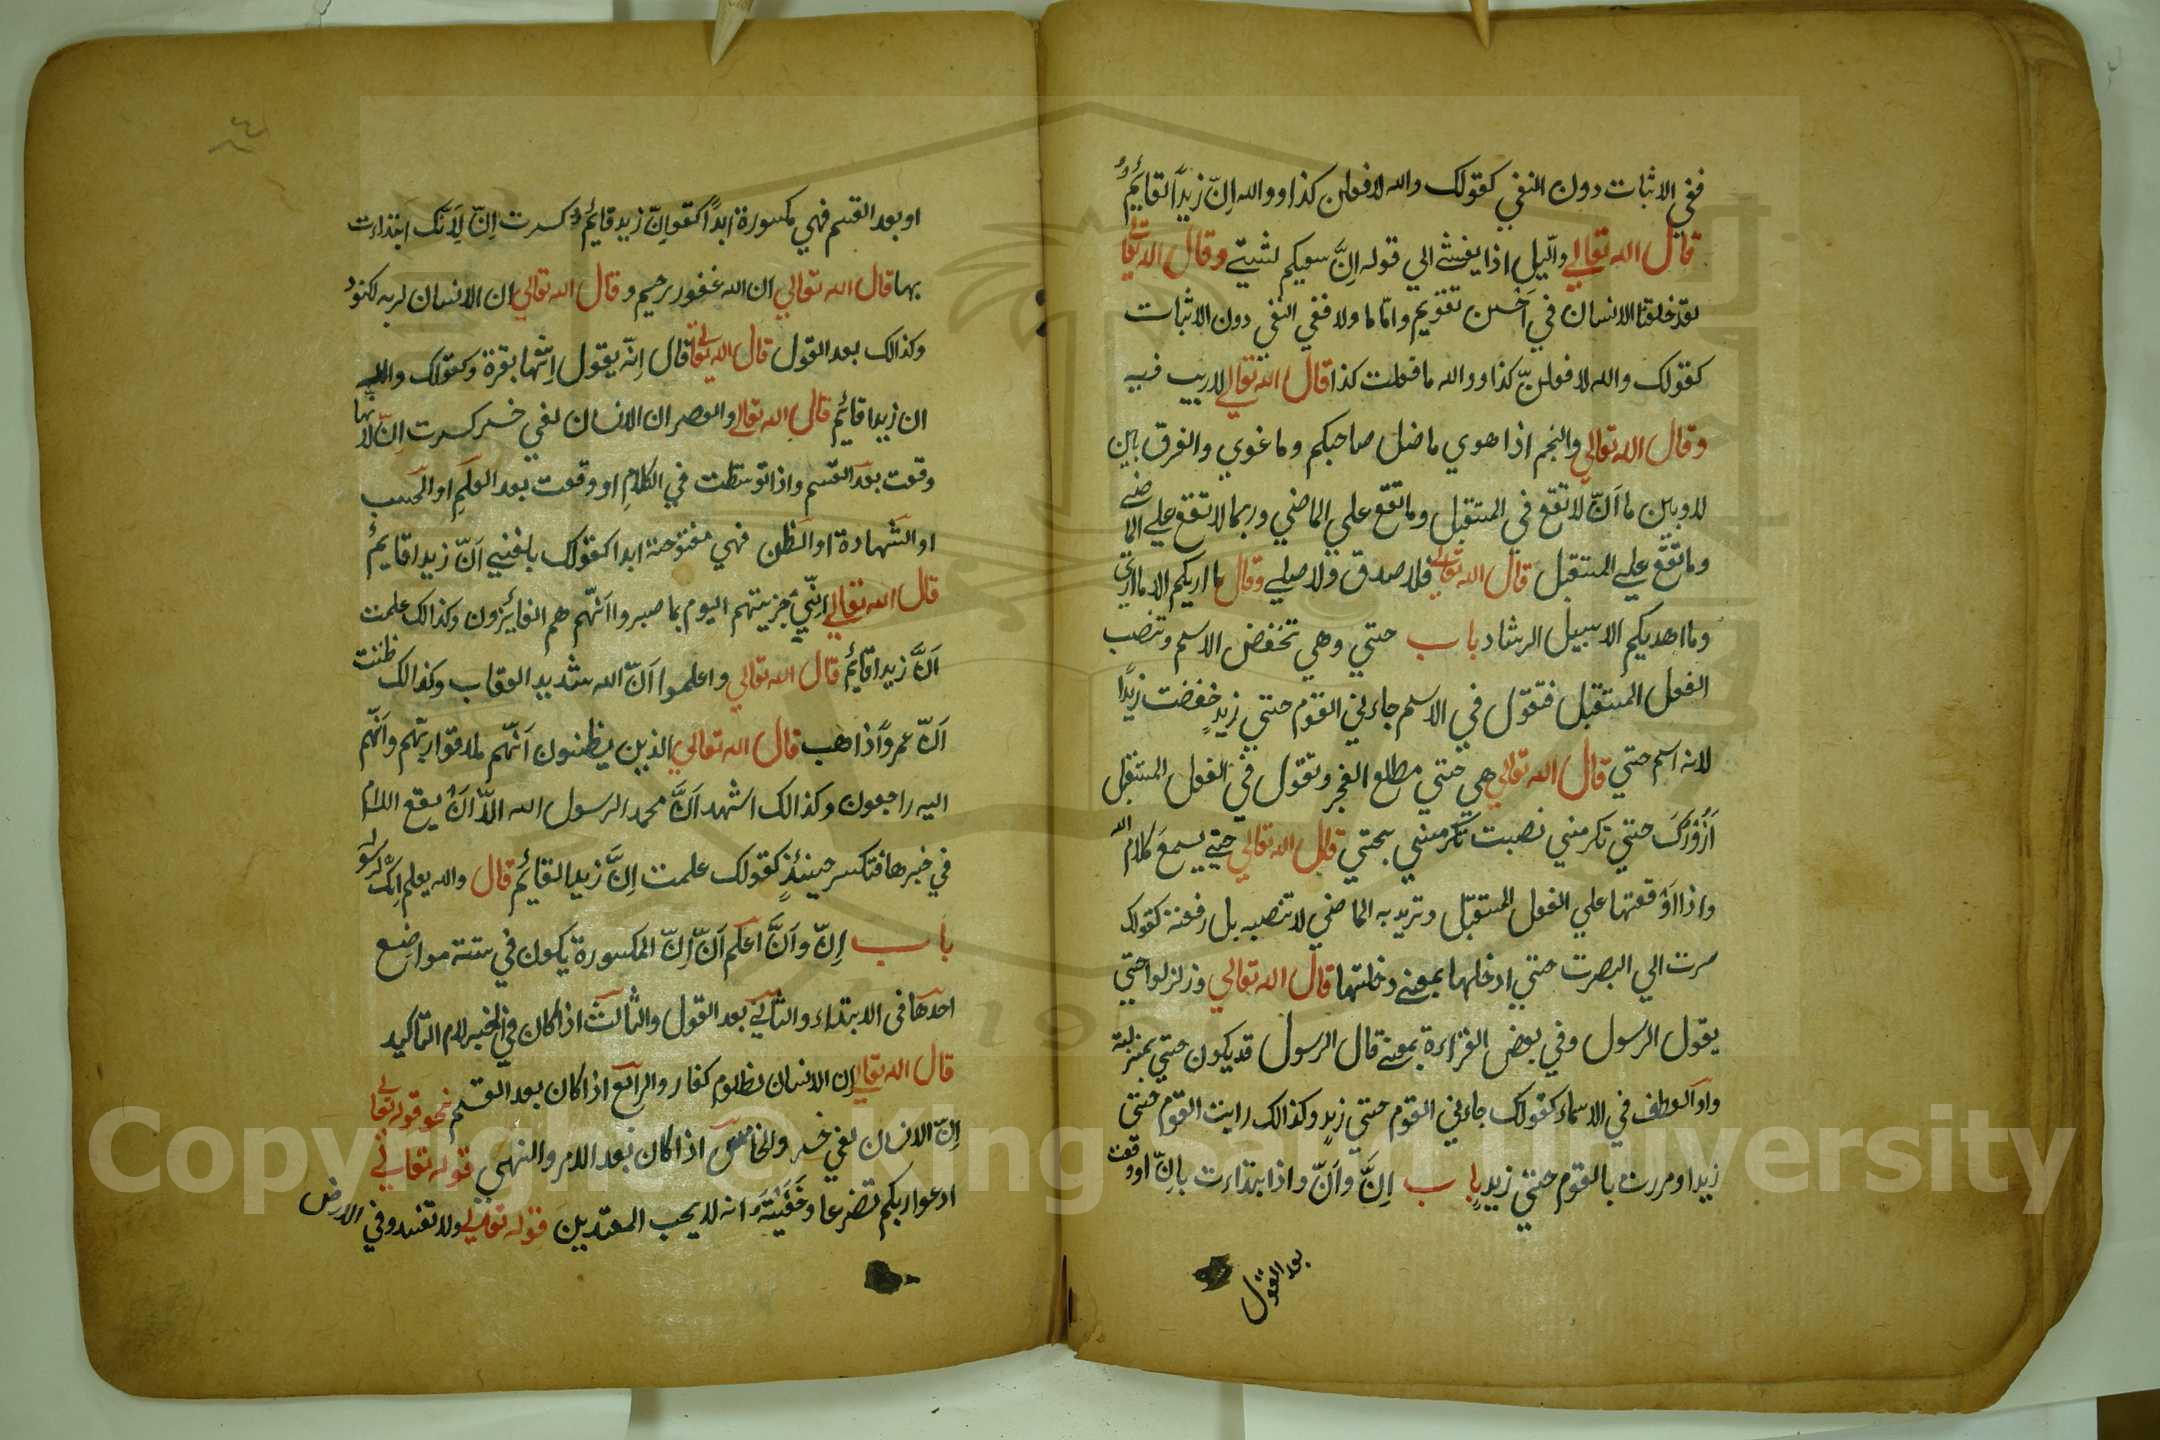 ففي الاثبات دون النفي كقولك والله لافعلن كذا ووالله اِنّ زيداً لقايمٌ
قال الله تعالي والّيل اذا يغشي الي قوله اِنَّ سعيكم لشتي وقال الله تعالي
لقد خلقنا الانسان في اَحْسن تقويم وامّا ما ولا ففي النفي دون الاثبات
كقولك والله لافعلنّ كذا ووالله ما فعلت كذا قال الله تعالي لاريب فيه
وقال الله تعالي والنجم اذا هوي ما ضل صاحبكم وما غوي والفرق بين
لا وبين ما اَنّ لا تقع في المستقبل وما تقع علي الماضي وربما لا تقع علي الماضي
وما تقع علي المستقبل قال الله تعالي فلا صدق ولا صلي وقال ما اريكم الا ما اري
وما اهديكم الا سبيل الرشاد باب حتي وهي تخفض الاسم وتنصب
الفعل المستقبل فتقول في الاسم جاءني القوم حتي زيدٍ خفضت زيدًا
لانه اسم حتي قال الله تعالي هي حتي مطلع الفجر وتقول في الفعل المستقبل
اَزُوْرُكَ حتي تكرمني نصبت تكرمني بحتي قال الله تعالي حتي يسمعَ كلام الله
واذا اَوْقعتها علي الفعل المستقبل وتريد به الماضي لا تنصبه بل رفعته كقولك
سرت الي البصرت حتي ادخلها بمعني دخلتها قال الله تعالي وزلزلوا حتي
يقول الرسول وفي بعض القراءة بمعني قال الرسول قد يكون حتي بمنزلة
واو العطف في الاسماء كقولك جاءني القوم حتي زيد وكذالك رايت القوم حتي
زيدا ومررت بالقوم حتي زيدٍ باب اِنَّ واَنّ واذا ابتداءت بانّ او وقعت
بعد القول
او بعد القسم فهي مكسورة ابداً كقو اِنّ زيد قائمٌ كسرت اِنّ لِاَنَّك ابتداءت
بها قال الله تعالي ان الله غفور رحيم وقال الله تعالي ان الانسان لربه لكنود
وكذالك بعد القول قال الله تعالي قال اِنّه يقول اِنّها بقرة وكقولك والله
ان زيدا قائم قال الله تعالي والعصر ان الانسان لفي خسر كسرت اِنّ لانها
وقعت بعد القسم واذا توسّطت في الكلامِ او وقعت بعد العلم او الحسب
او الشهادة او الظن فهي مفتوحة ابدا كقولك بلغني اَنّ زيدا قايمٌ
قال الله تعالي انّي جزيتهم اليوم بما صبروا اَنّهم هم الفائزون وكذالك علمت
اَنَّ زيدا قائم قال الله تعالي واعلموا اَنّ الله شديد العقاب وكذالك ظننت
اَنّ عمرواً ذاهب قال الله تعالي الذين يظنون اَنّهم ملاقوا ربّهم واَنّهم
اليه راجعون وكذالك اشهد اَنَّ محمد الرسول الله الاّ اَنْ يقع اللام
في خبرها فتكسر حينئذٍ كقولك علمت اِنَّ زيدا لقائم قال والله يعلم اِنّك لرسوله
باب اِنّ واَنَّ اعلم اَنّ اِنّ المكسورة يكون في ستة مواضِع
احدها في الابتداء والثاني بعد القول والثالث اذا كان في الخبر لام التاكيد
قال الله تعالي اِن الانسان لظلوم كفار والرابع اذا كان بعد القسم نحو قوله تعالي
اِنّ الانسان لفي خسر والخامس اذا كان بعد الامر والنهي قوله تعالي
ادعوا ربكم تضرعا وخفية انه لا يحب المعتدين قوله تعالي ولا تفسدو في الارض
Copyright © King Saud University
1957